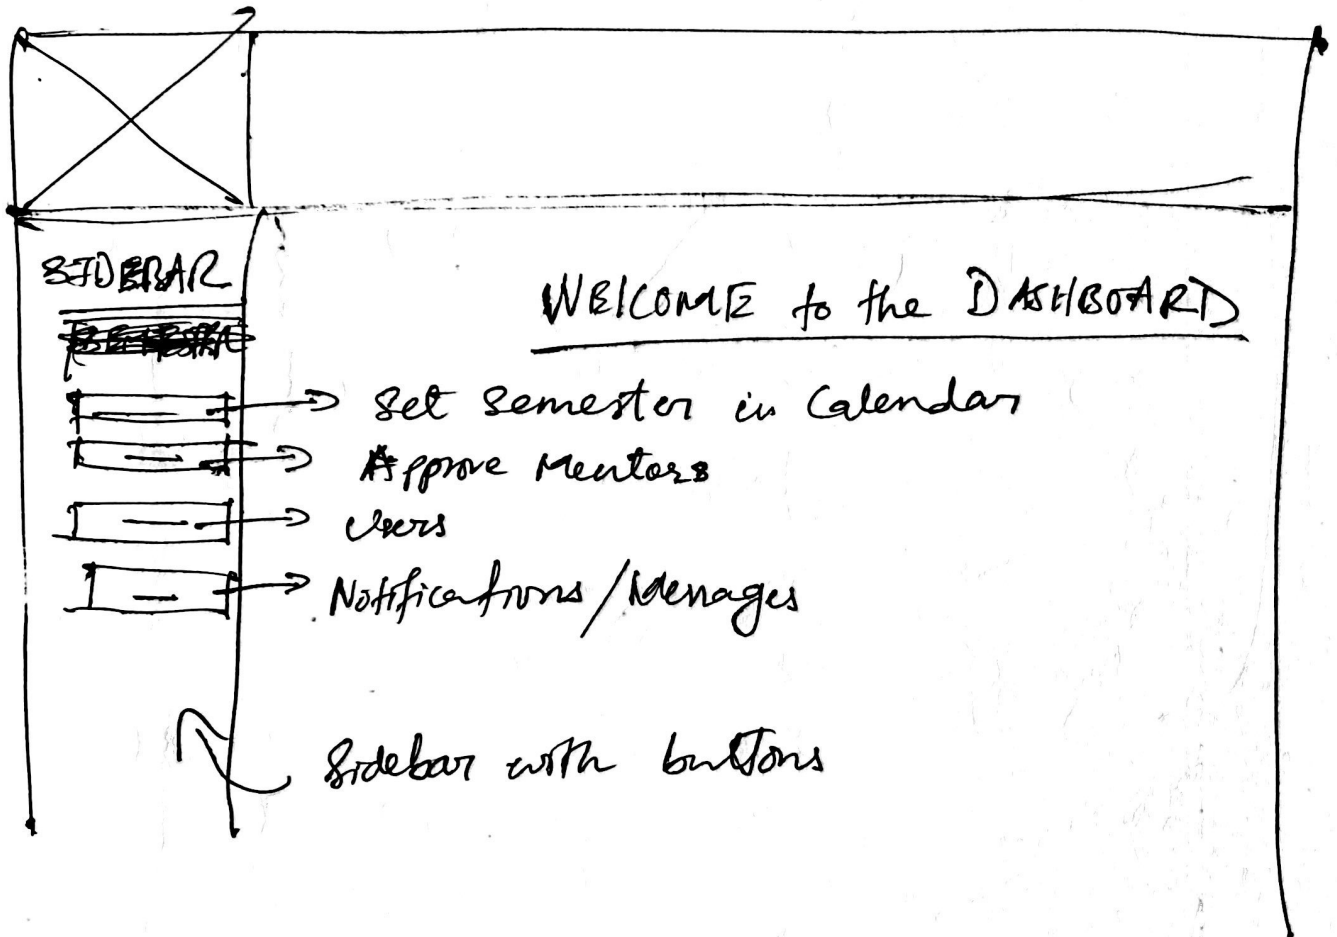 SIDEBAR
WELCOME to the DASHBOARD
Set Semester in Calendar
Approve Mentors
Users
Notifications/Messages
Sidebar with buttons